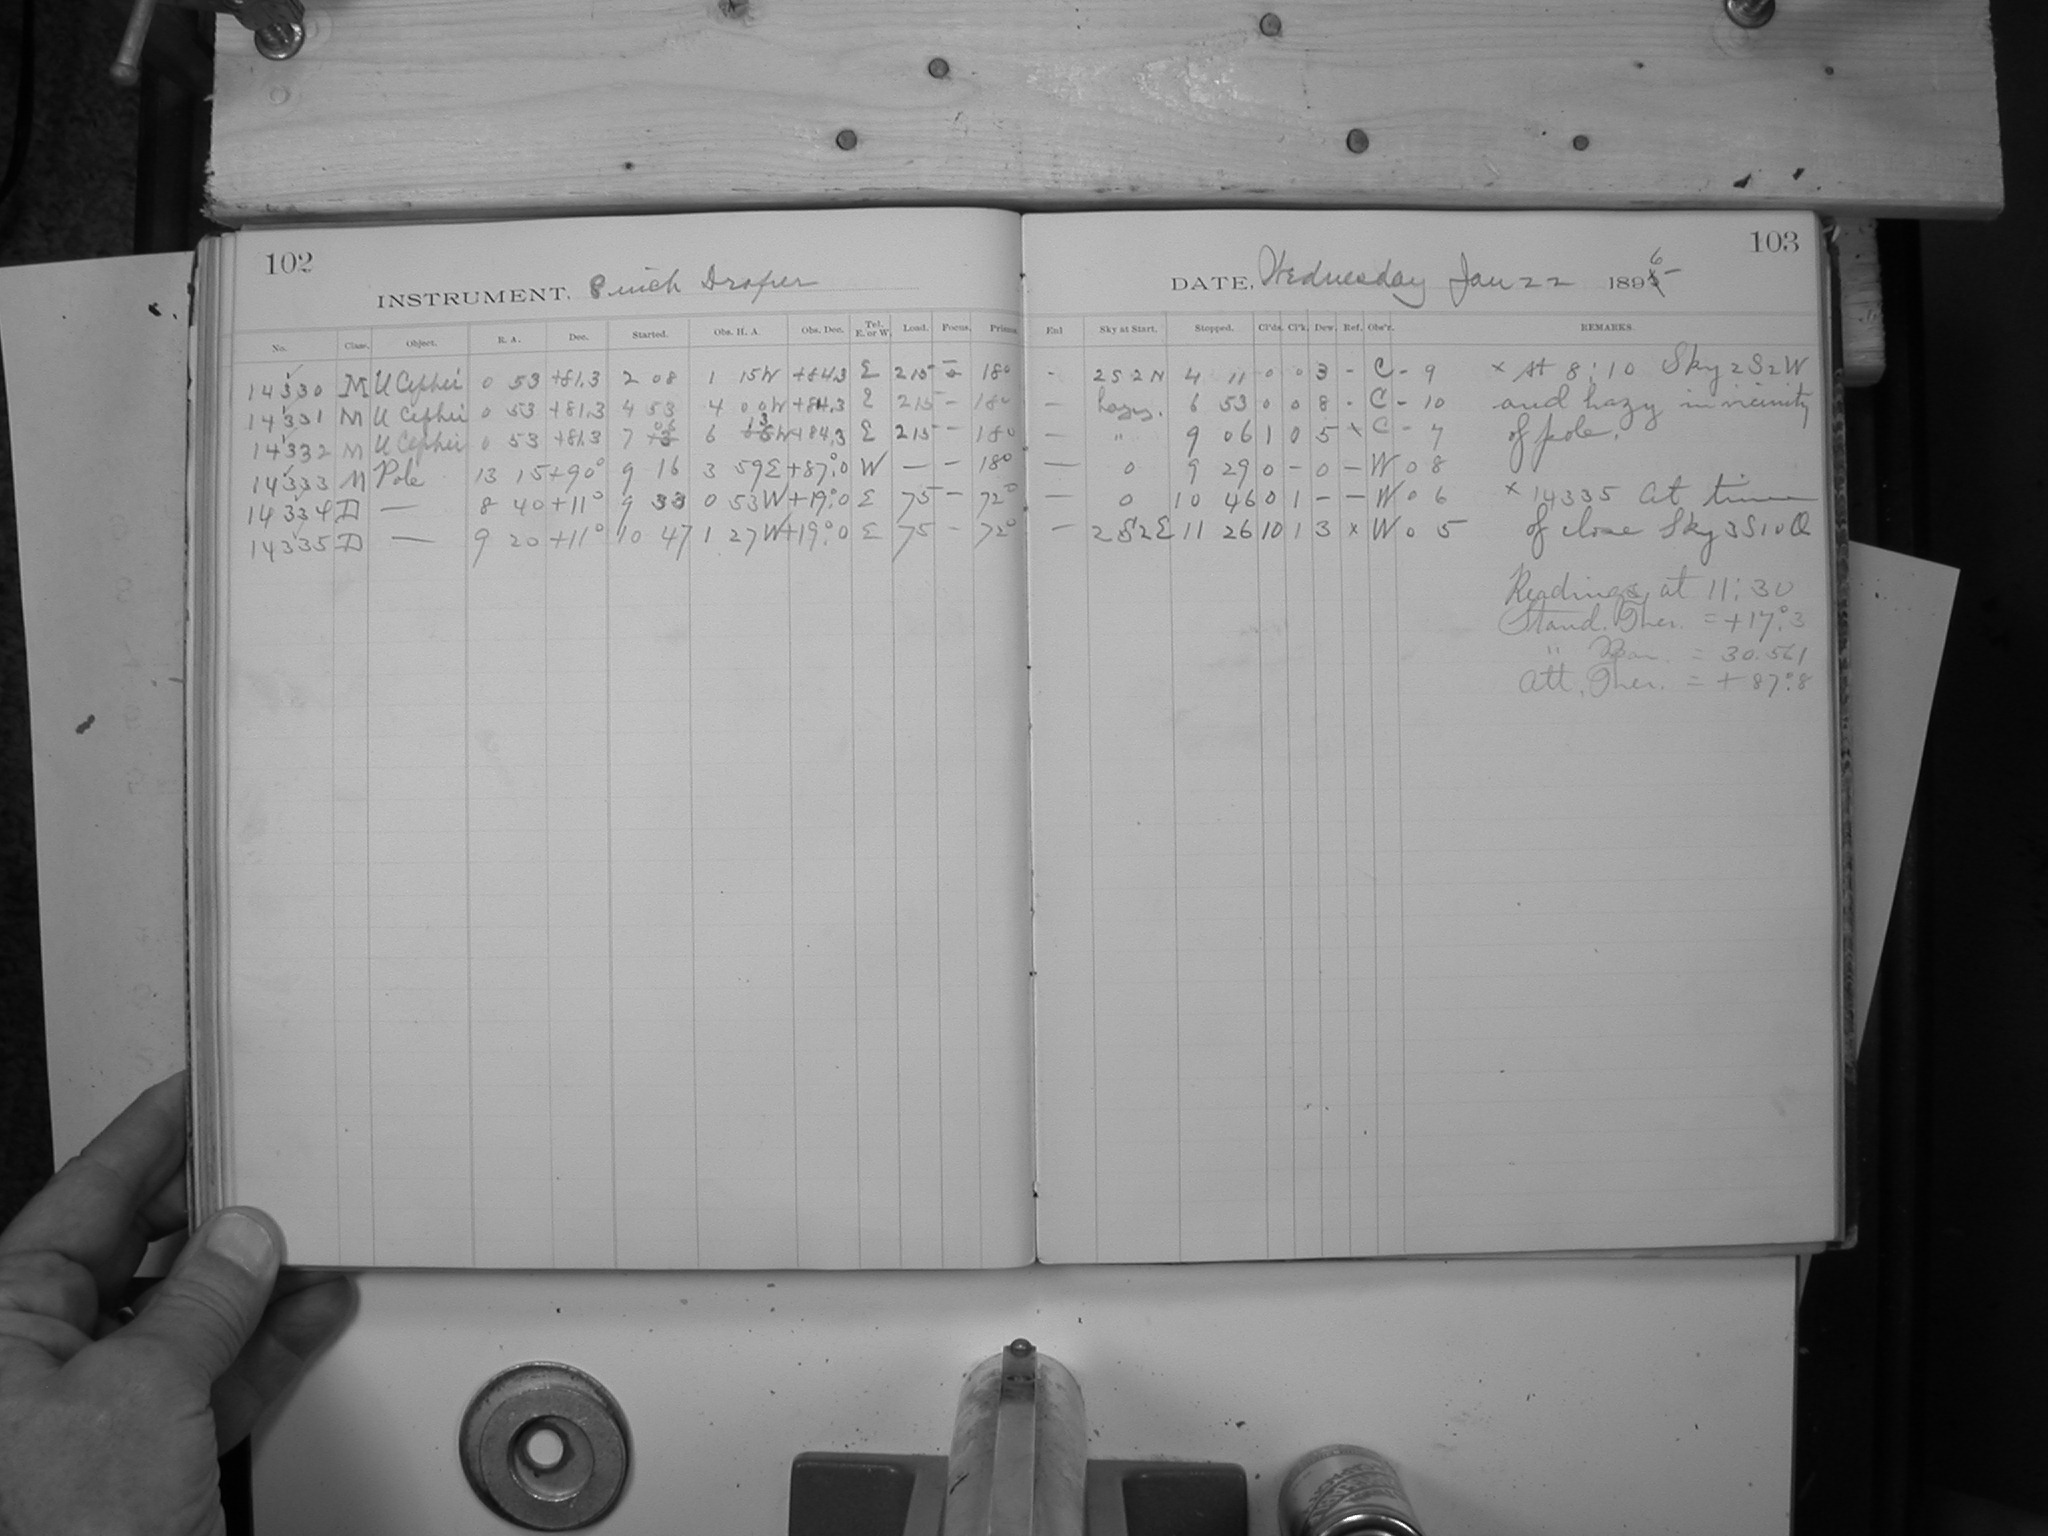 102
INSTRUMENT. 8 inch Draper
No. Class. Object. R. A. Dec. Started. Obs. H. A. Obs. Dec. Tel. E. or W. Load. Focus. Prisms.
14330 M U Cephei 0 53 +81.3 2 08 1 15W +84.3 E 215 180
14331 M U Cephei 0 53 +81.3 4 53 4 00W +84.3 E 215 — 180
14332 M U Cephei 0 53 +81.3 7 06 6 13W +84.3 E 215 — 180
14333 M Pole 13 15 +90° 9 16 3 59E +87°.0 W — — 180
14334 D — 8 40 +11° 9 33 0 53W +19°.0 E 75 — 72°
14335 D — 9 20 +11° 10 47 1 27W +19°.0 E 75 — 72°
103
DATE, Wednesday Jan 22 1896
Enl Sky at Start. Stopped. Cl'ds. Cl'k. Dew. Ref. Obs'r. REMARKS.
- 2S2N 4 11 0 0 3 - C - 9
— hazy. 6 53 0 0 8 - C - 10
— " 9 06 1 0 5 x C - 7
— 0 9 29 0 - 0 — W 0 8
— 0 10 46 0 1 - — W 0 6
— 2S2E 11 26 10 1 3 x W 0 5
x At 8:10 Sky 2S2W
and hazy in vicinity
of pole.
x 14335 At time
of close Sky 3S10
Readings at 11:30
Stand. Ther. = +17°.3
" Bar. = 30.561
Att. Ther. = +87°.8